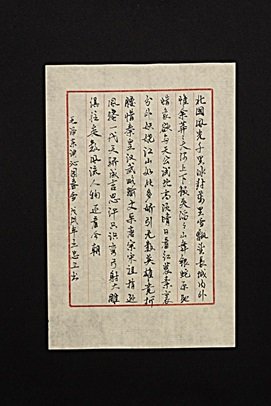 北国風光千里冰封萬里雪飘望長城内外
惟余莽莽大河上下頓失滔滔山舞银蛇原驰
蜡象欲与天公试比高须晴日看红装素裹
分外妖娆江山如此多娇引无数英雄竞折
腰惜秦皇汉武略输文采唐宗宋祖稍逊
風骚一代天骄成吉思汗只识弯弓射大雕
俱往矣数風流人物还看今朝
毛泽东沁园春雪 戊戌年